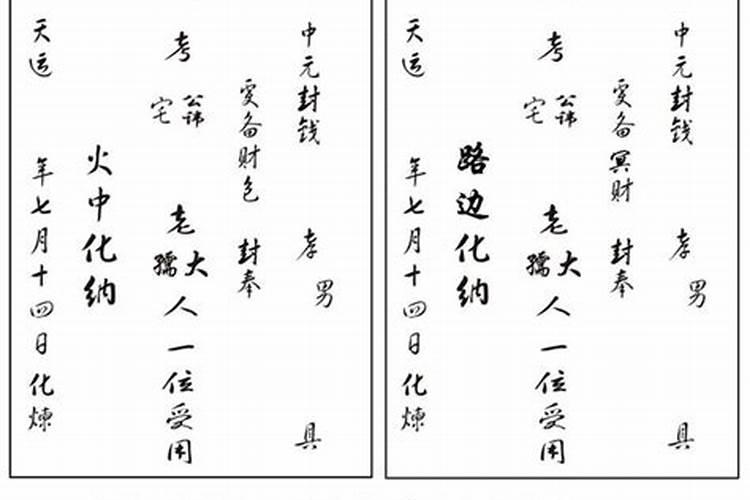 中元封钱 孝男 具
爰备冥财 封奉
考 公讳 宅 老大孺人一位受用
路边化纳
天运 年七月十四日化炼
中元封钱 孝男 具
爰备财包 封奉
考 公讳 宅 老大孺人一位受用
火中化纳
天运 年七月十四日化炼